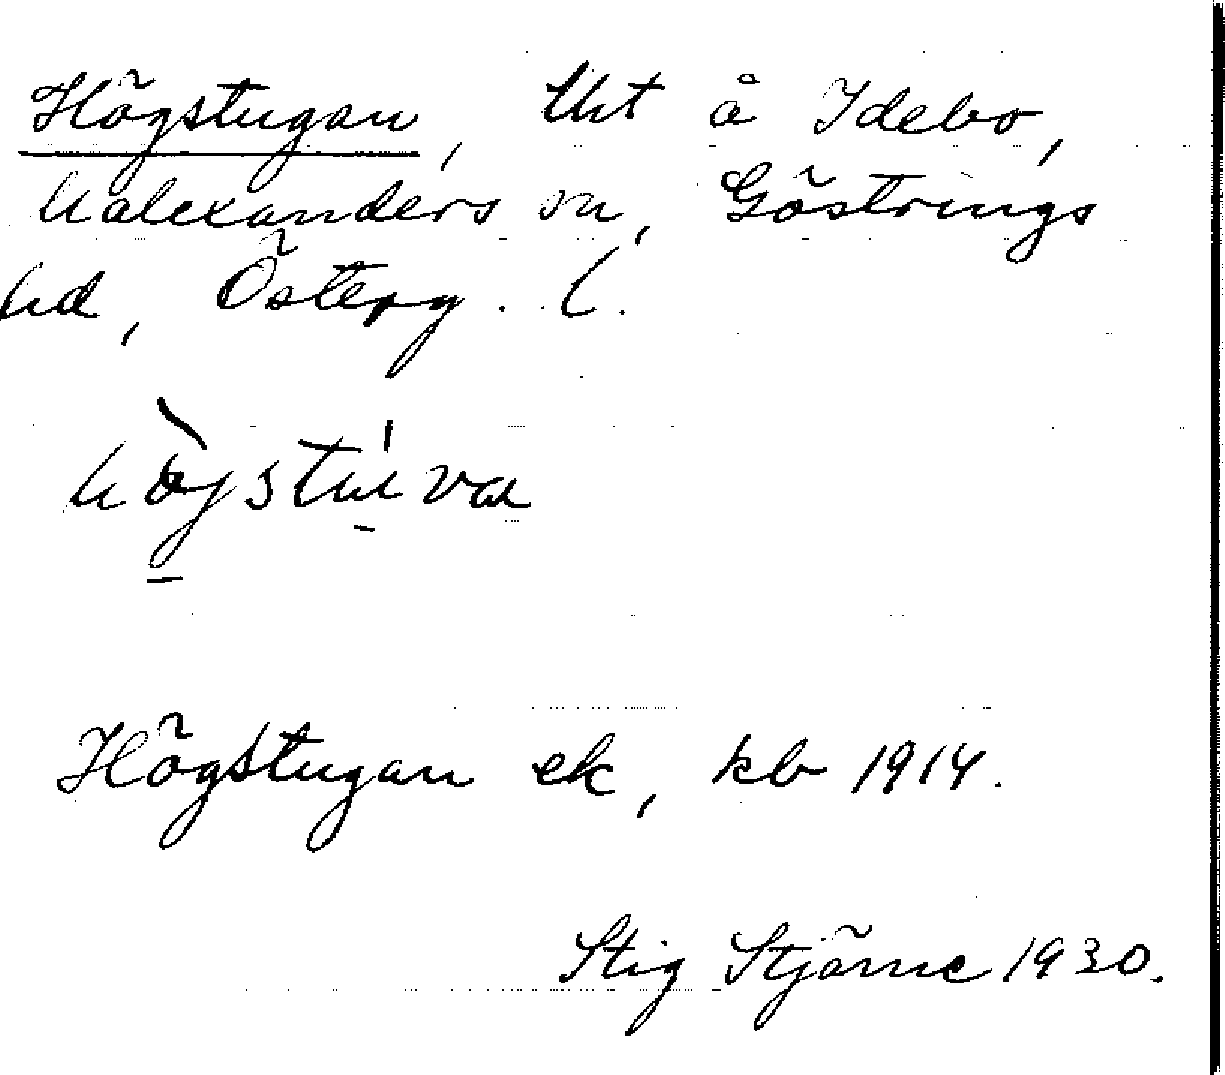 Högstugan, lht å Idebo,
Kalexanders sn, Göstrings
hd, Österg. l.
Högstugan ek, kb 1914.
Stig Stjärne 1930.